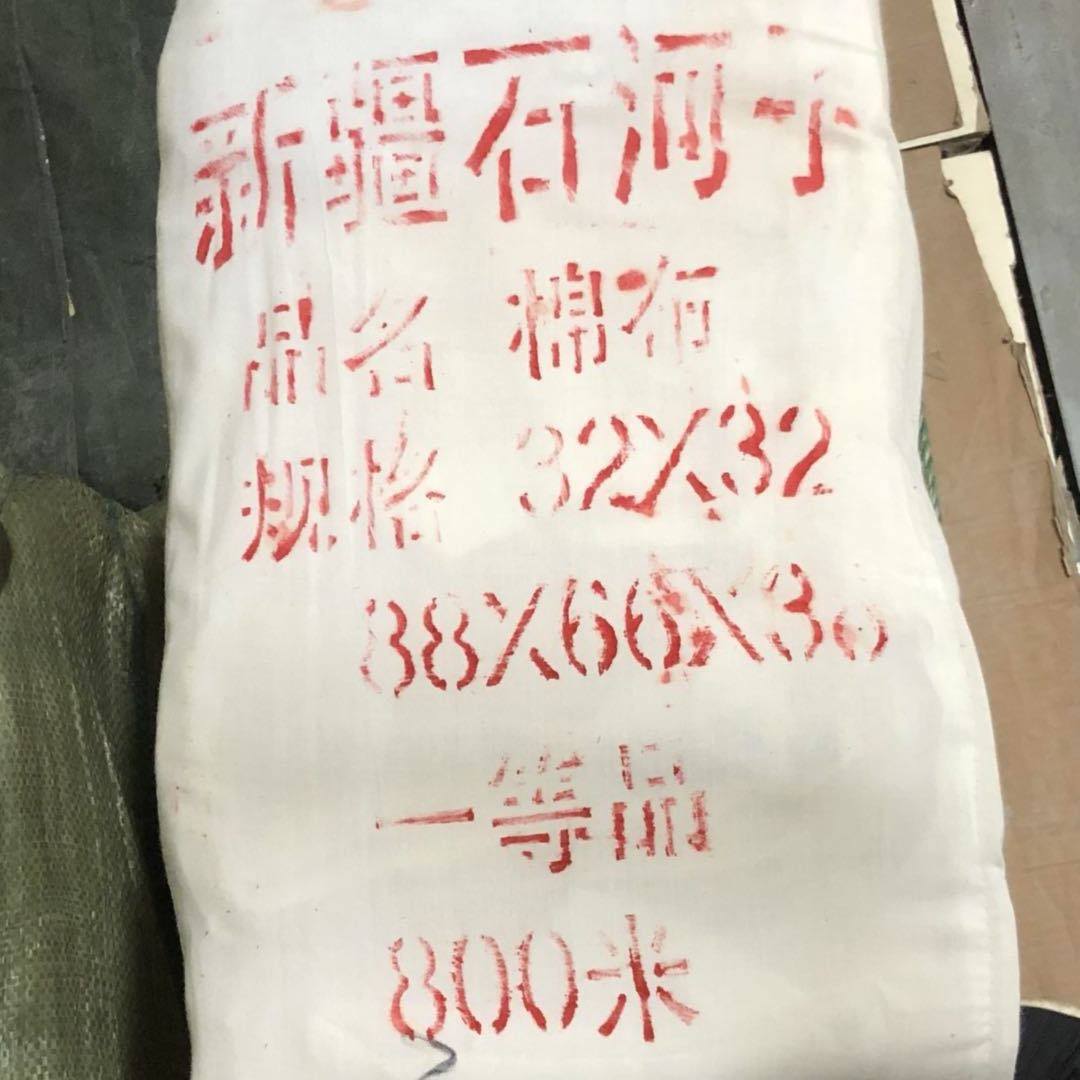 新疆石河子
品名 棉布
规格 32X32
88X66X30
一等品
800米